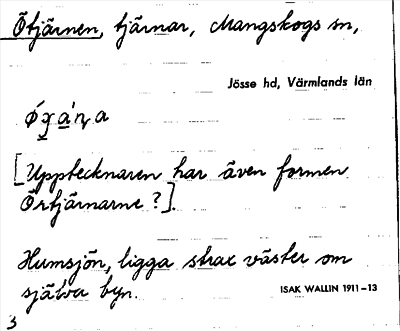 Õtjärnen, tjärnar, Mangskogs sn,
Jösse hd, Värmlands län
[Upptecknaren har även formen
Örtjärnarne?].
Humsjön, ligga strax väster om
själva byn.
ISAK WALLIN 1911-13
3